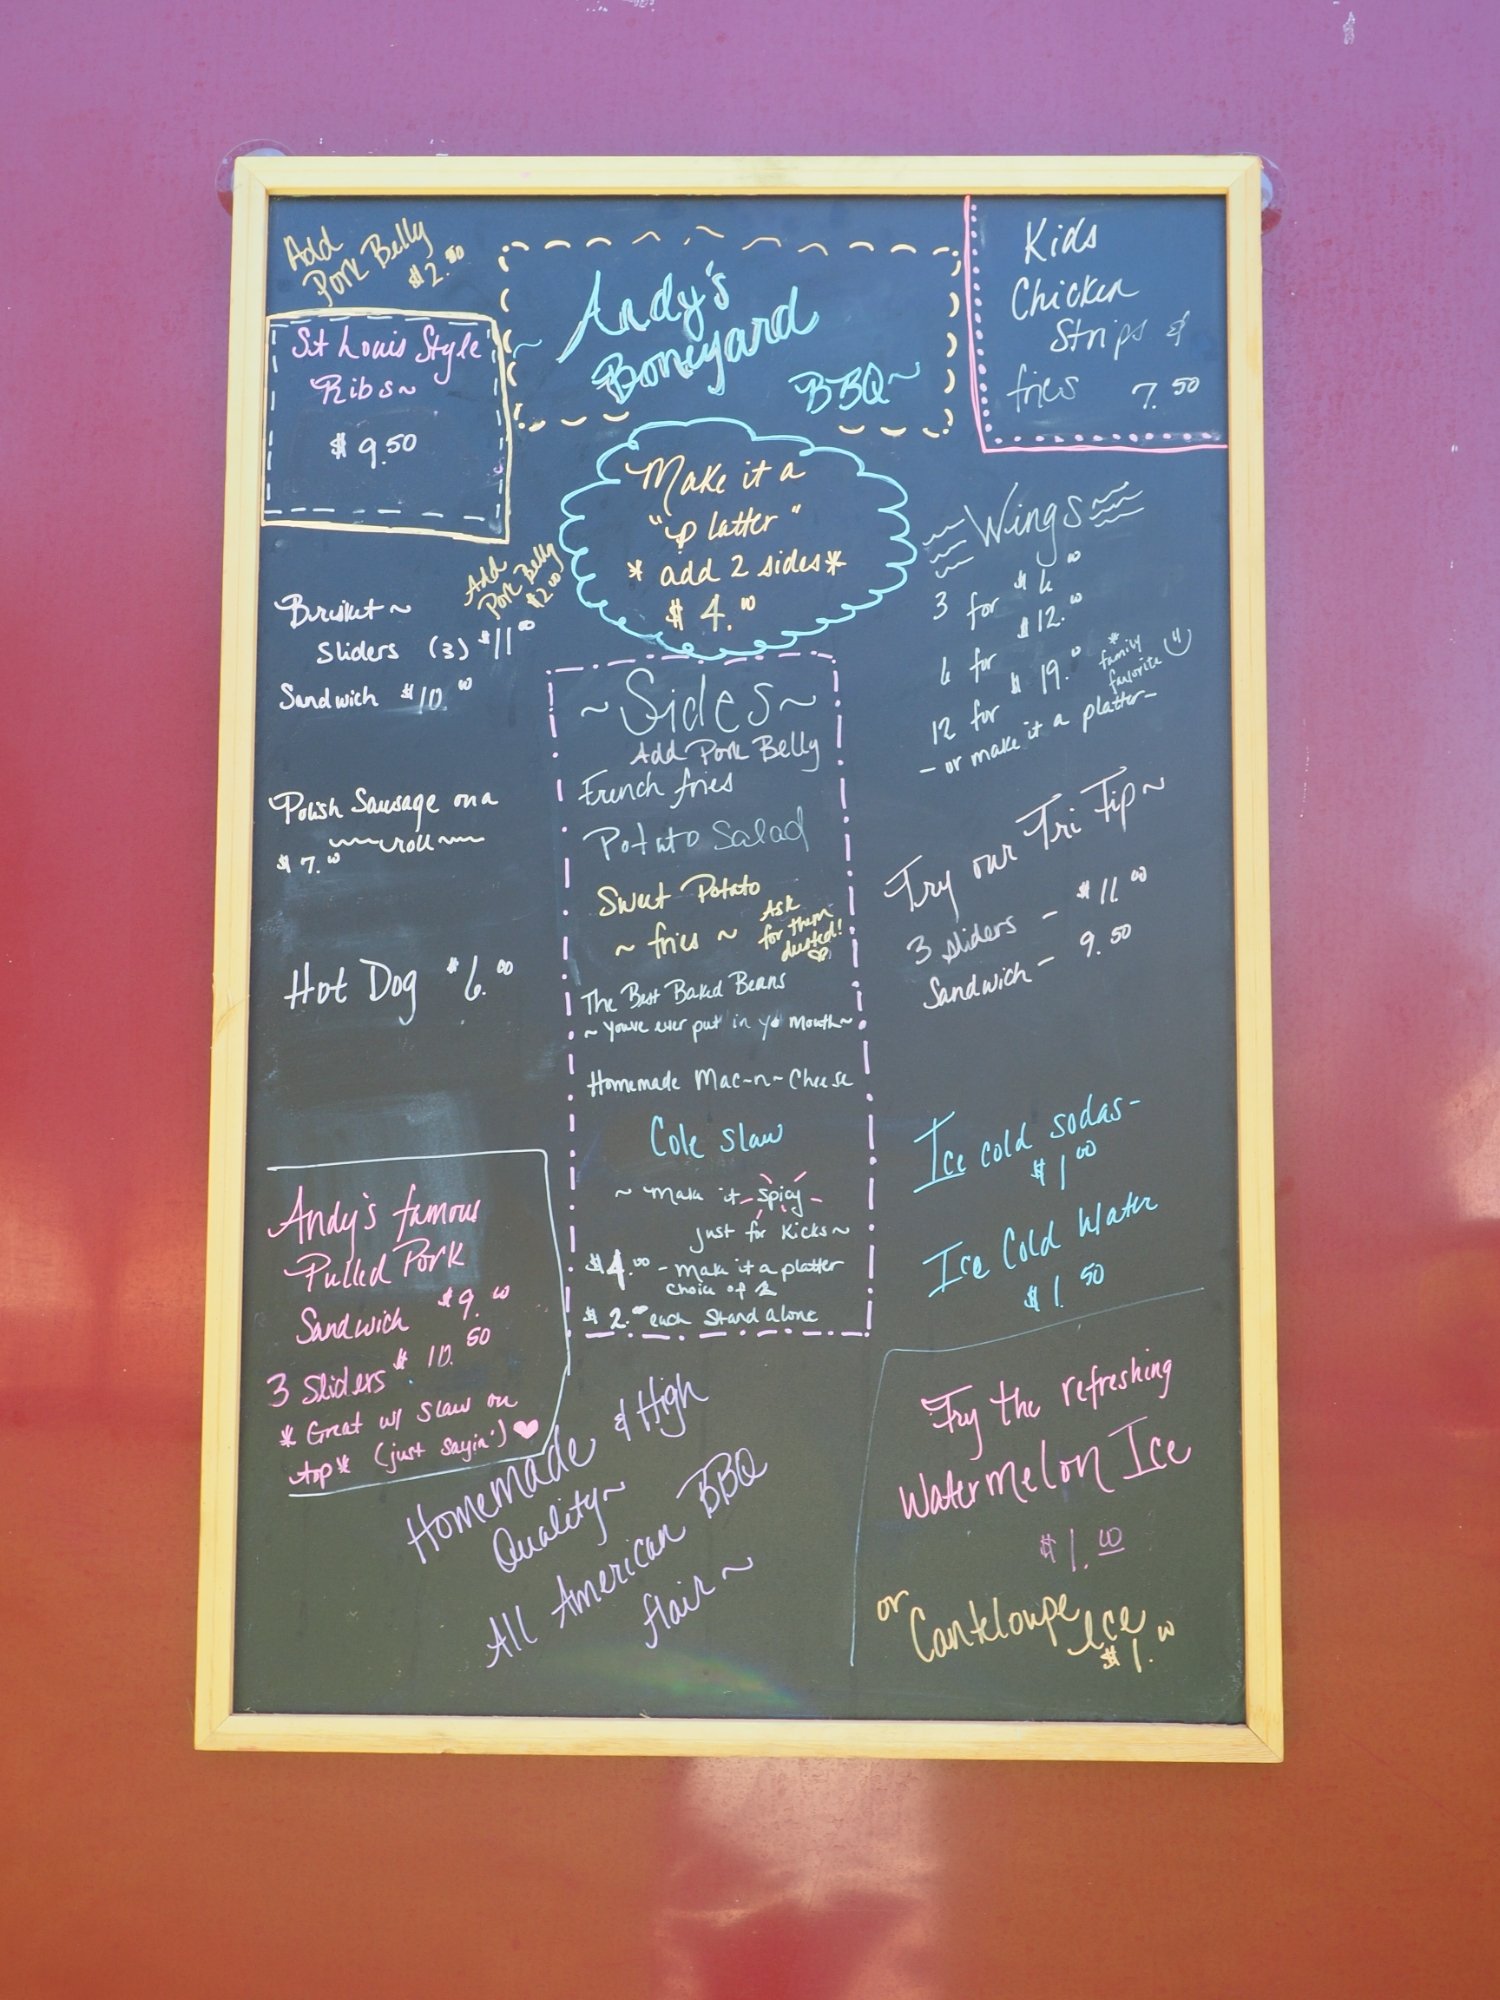 Add
Pork Belly
$2.50
St Louis Style
Ribs~
$9.50
Andy's
Boneyard
BBQ~
Kids
Chicken
Strips &
fries 7.50
Make it a
"platter"
* add 2 sides *
$4.00
Add
Pork Belly
$2.00
Brisket~
Sliders (3) $11.00
Sandwich $10.00
Polish Sausage on a
~roll~
$7.00
Hot Dog $6.00
Andy's famous
Pulled Pork
Sandwich $9.00
3 Sliders $10.50
* Great w/ slaw on
top * (just sayin') ♥
~Sides~
Add Pork Belly
French fries
Potato Salad
Sweet Potato
~ fries ~
Ask
for them
dusted!
The Best Baked Beans
~ youve ever put in yo mouth~
Homemade Mac-n-Cheese
Cole slaw
~ Make it spicy
just for kicks~
$4.00 - Make it a platter
choice of 2
$2.00 each stand alone
Wings
3 for $6.00
6 for $12.00
12 for $19.00
* family
favorite
- or make it a platter -
Try our Tri Tip~
3 sliders - $11.00
Sandwich - 9.50
Ice cold sodas-
$1.00
Ice Cold Water
$1.50
Try the refreshing
Watermelon Ice
$1.00
or Canteloupe Ice
$1.00
Homemade & High
Quality~
All American BBQ
flair~